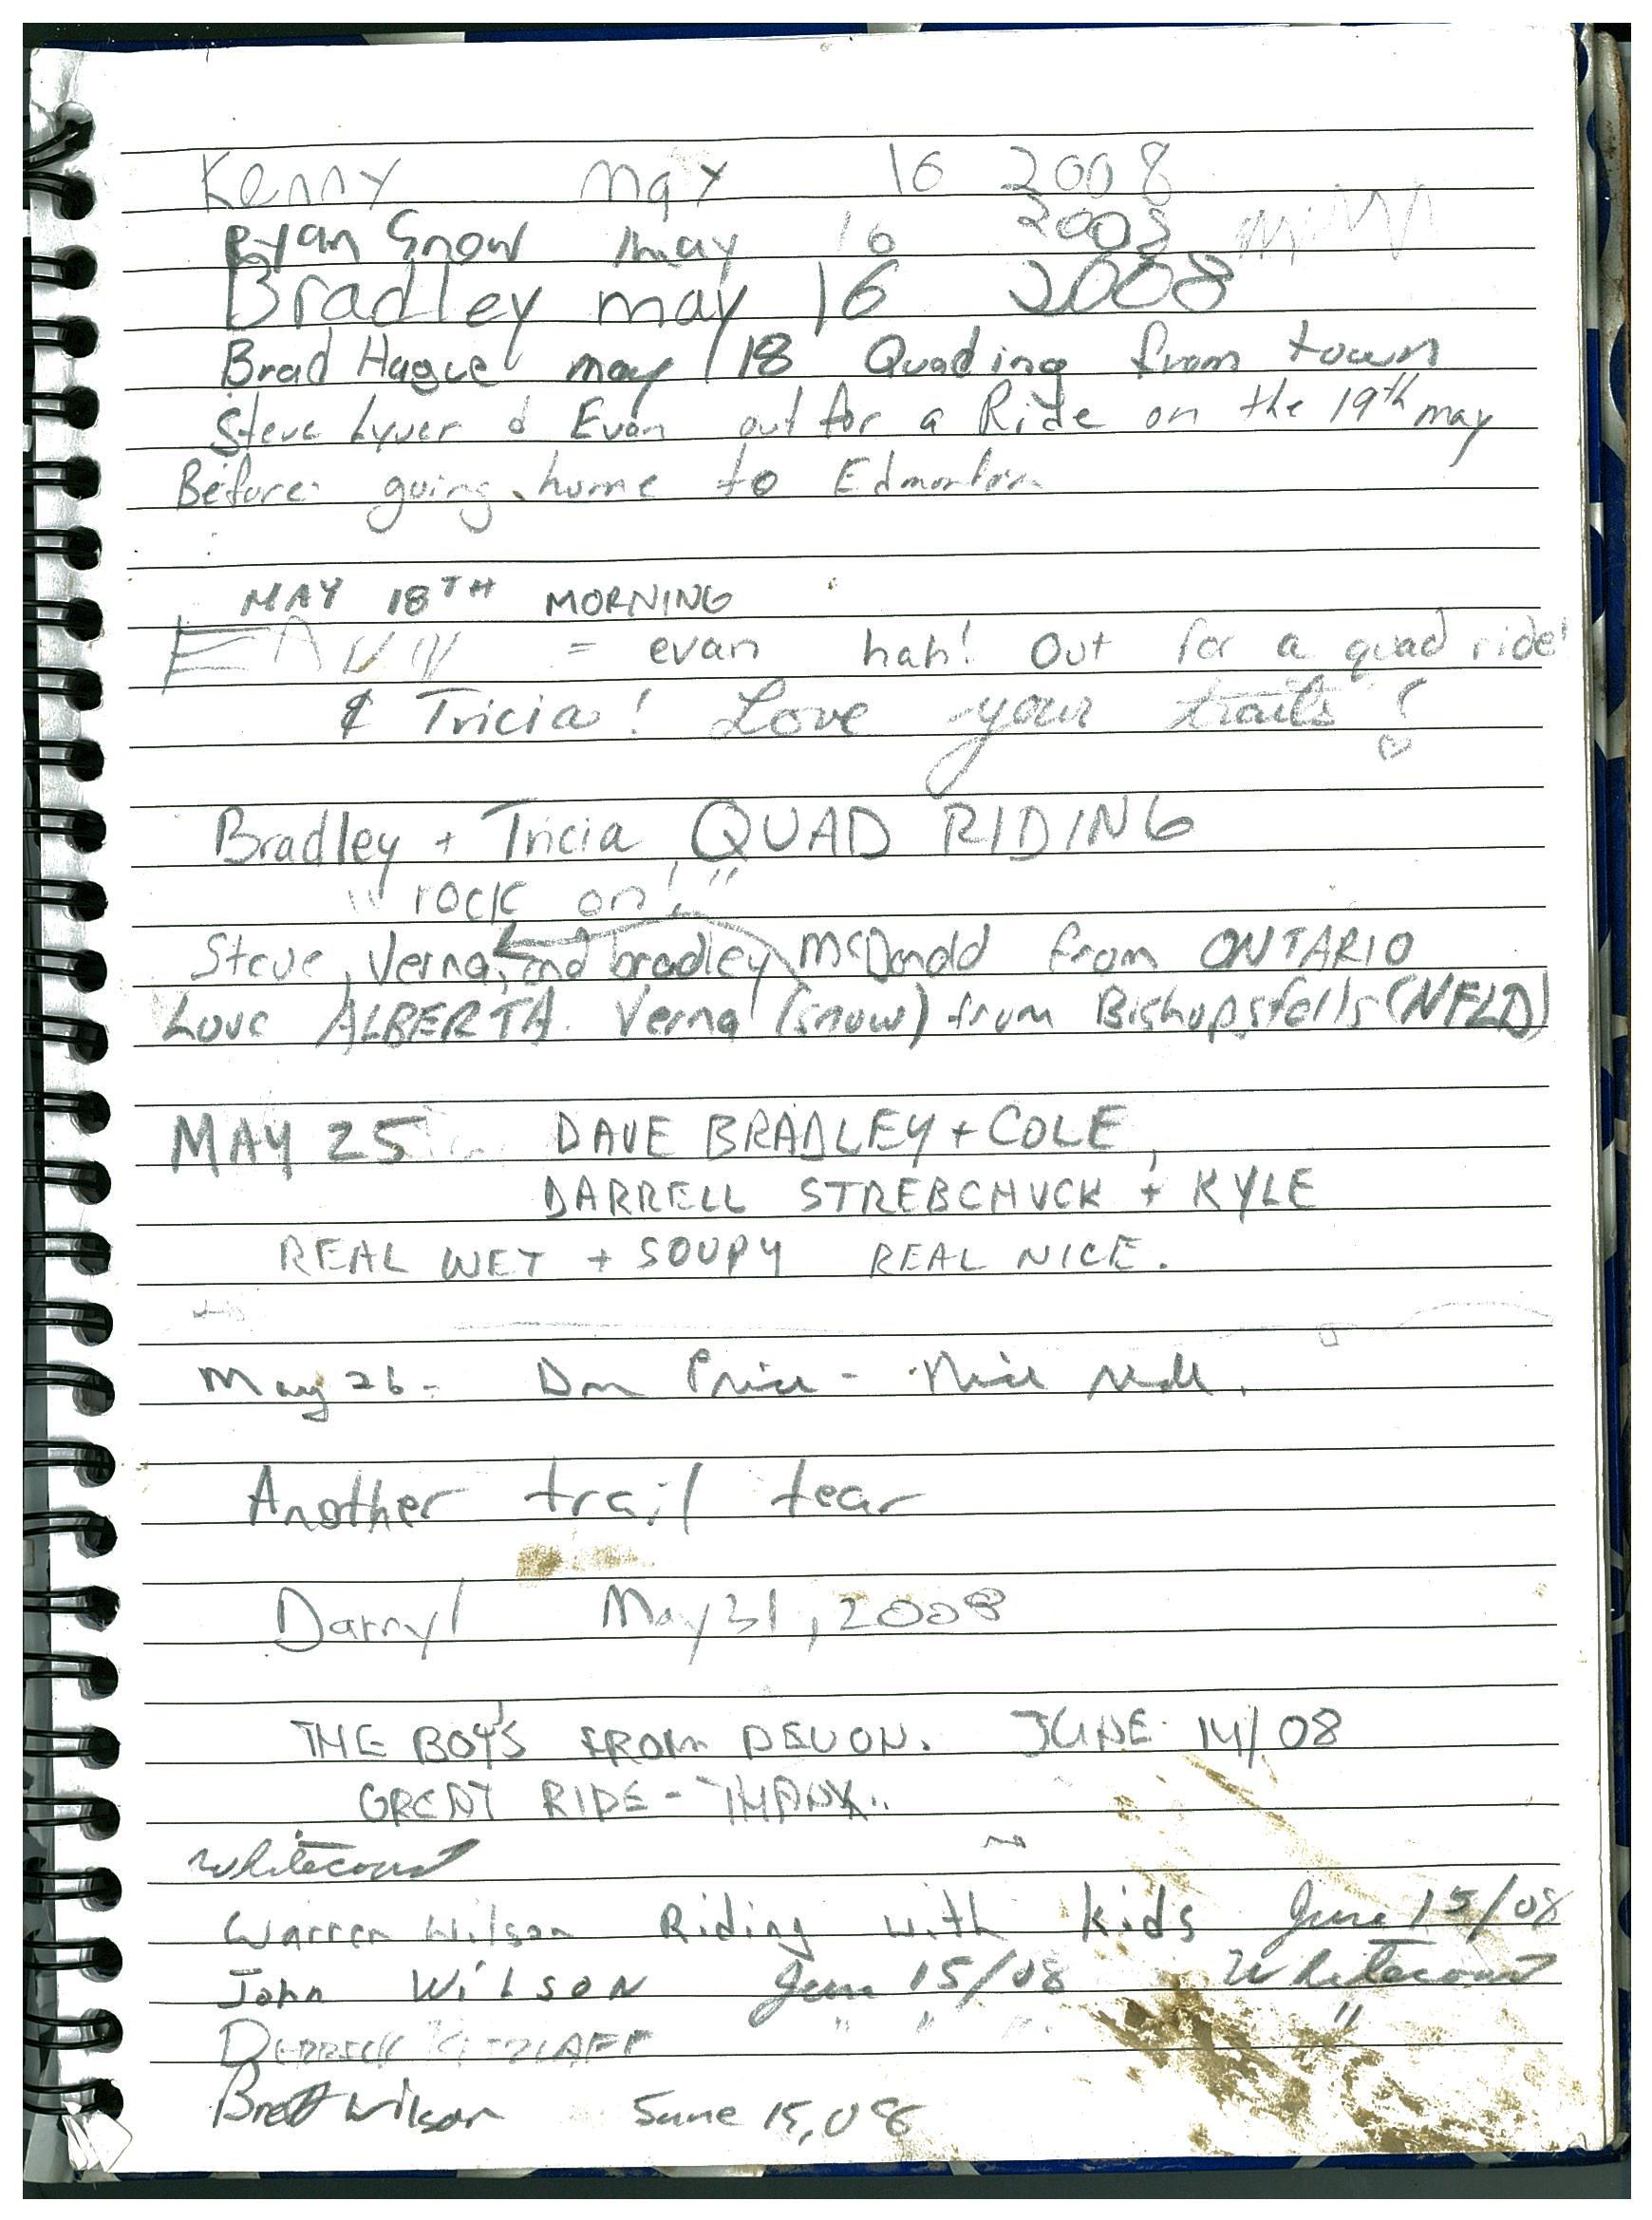 Kenny may 16 2008
Ryan Snow may 16 2008
Bradley may 16 2008
Brad Hague may 18 Quading from town
Steve Lyver & Evan out for a Ride on the 19th may
Before going home to Edmonton
MAY 18TH MORNING
= evan hah! Out for a quad ride!
& Tricia! Love your trails!
Bradley + Tricia QUAD RIDING
"rock on!"
Steve, Verna, and bradley McDonald from ONTARIO
Love ALBERTA. Verna (snow) from Bishopsfalls (NFLD)
MAY 25 DAVE BRADLEY + COLE,
DARRELL STREBCHUCK + KYLE
REAL WET + SOUPY REAL NICE.
May 26 - Don Price - Nice ride.
Another trail tear
Darryl May 31, 2008
THE BOY'S FROM DEVON. JUNE 14/08
GREAT RIDE - THANX..
Whitecourt
Warren Wilson Riding with kids June 15/08
John WilSON June 15/08 Whitecourt
DERRICK " " " "
Brett Wilson June 15, 08